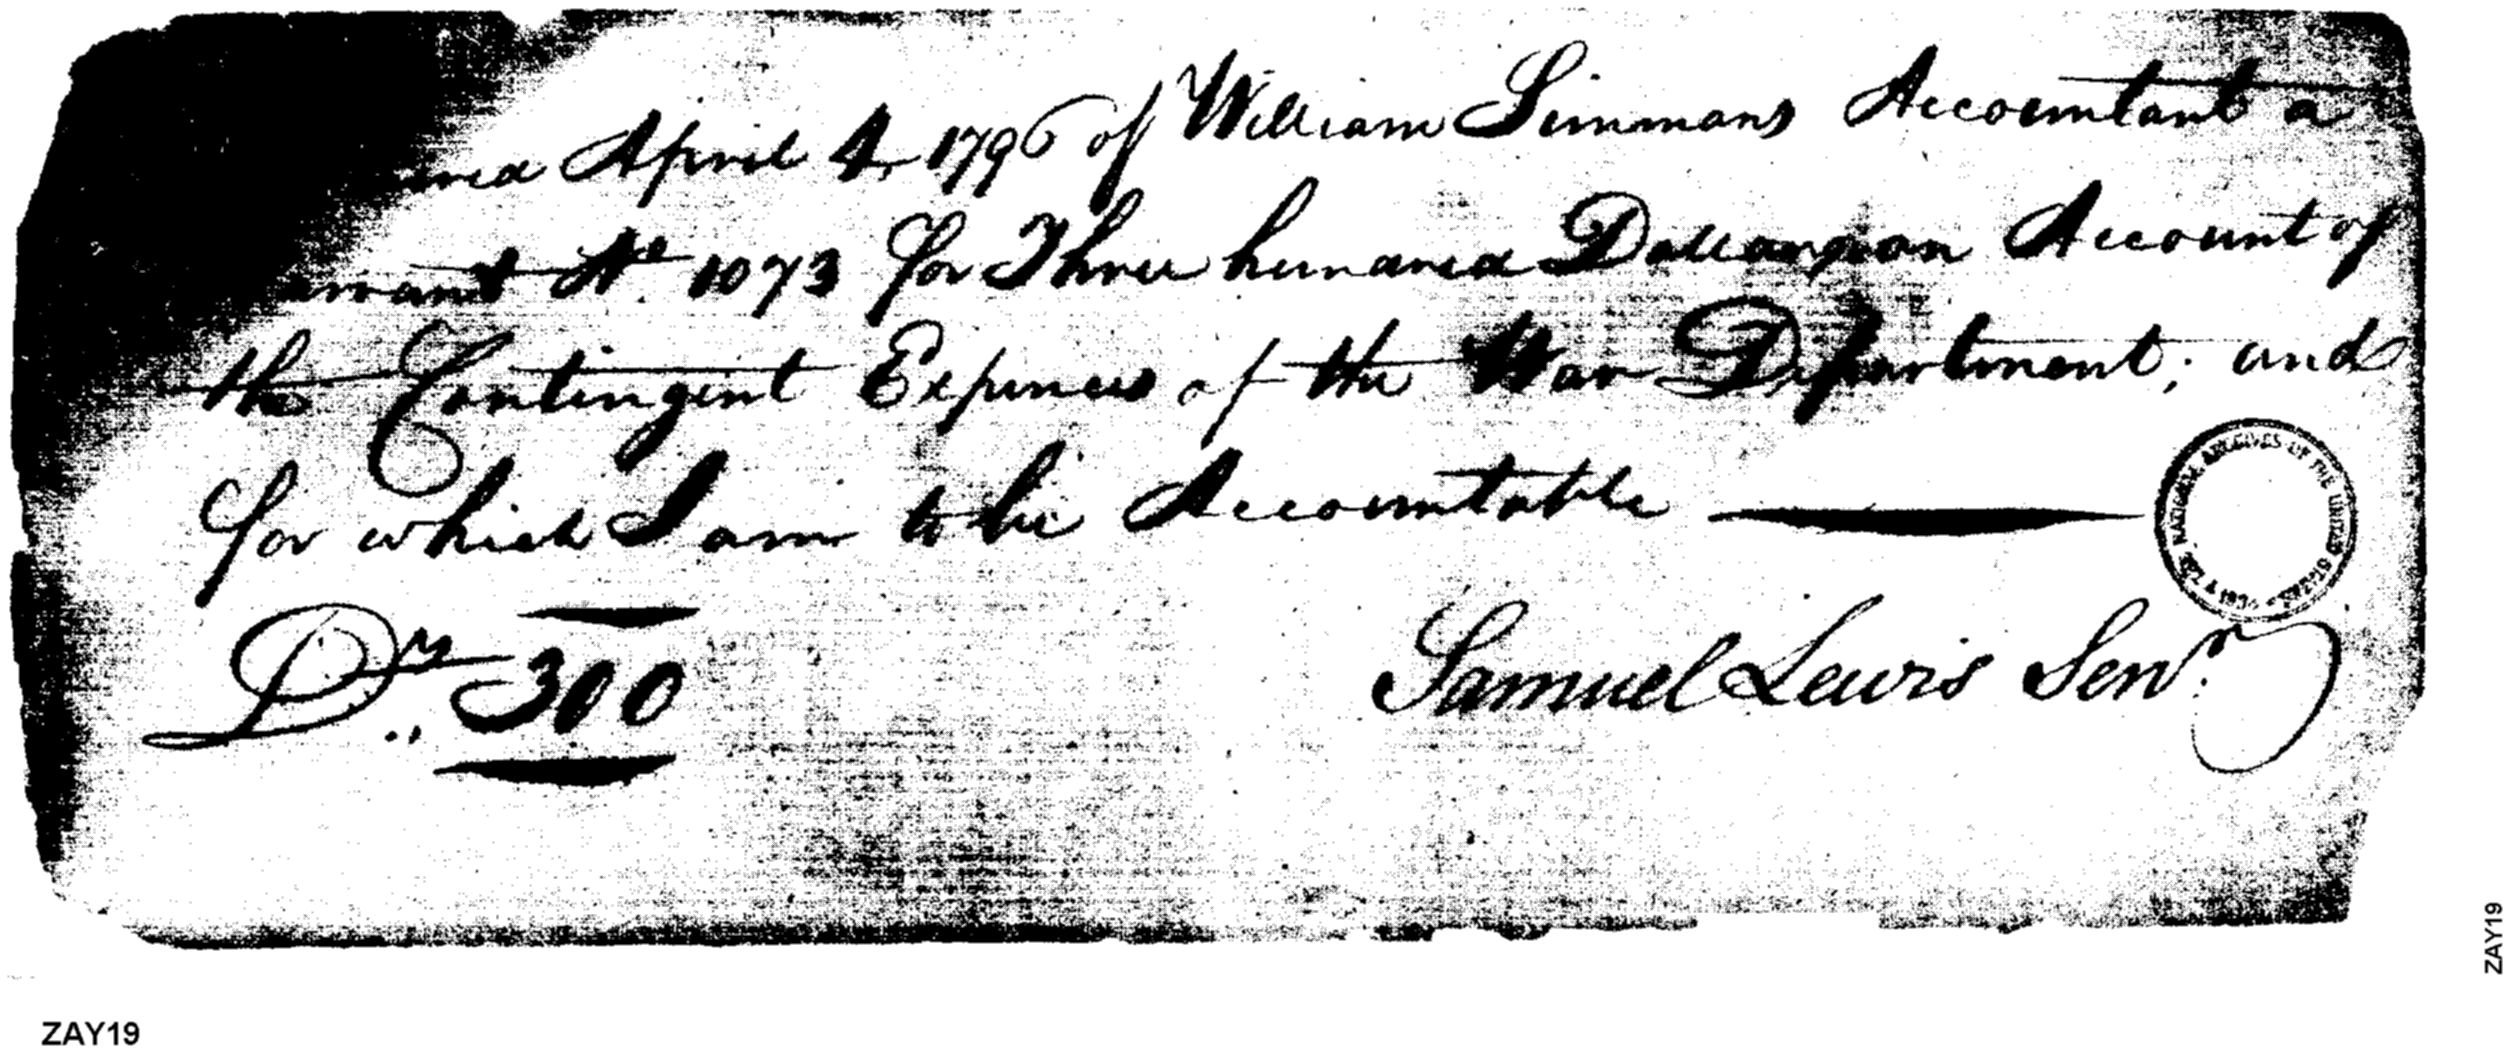 April 4, 1796 of William Simmons Accountant a
No. 1073 for Three hundred Dollars on Account of
the Contingent Expences of the War Department; and
for which I am to be Accountable
THE NATIONAL ARCHIVES OF THE UNITED STATES
Drs.. 300
Samuel Lewis Senr.
ZAY19
ZAY19